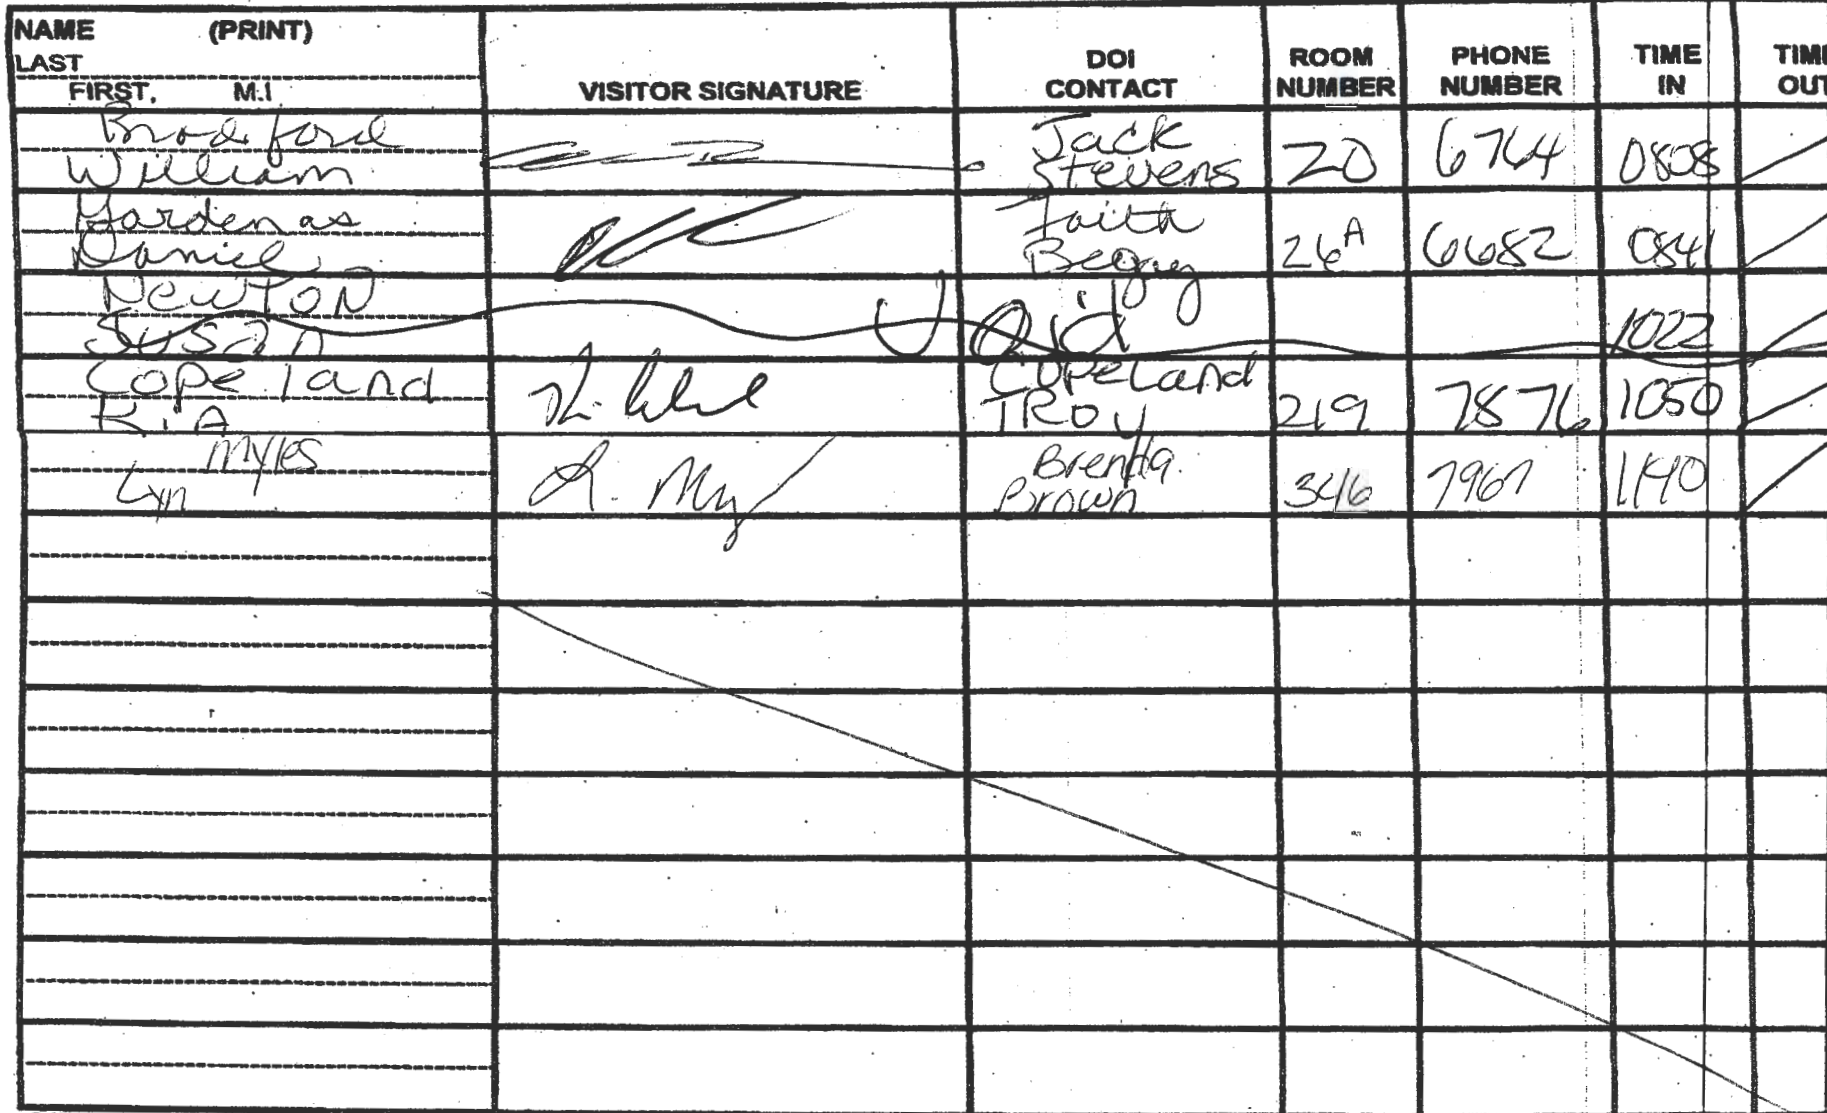 NAME (PRINT)
LAST
FIRST, M.I
VISITOR SIGNATURE
DOI
CONTACT
ROOM
NUMBER
PHONE
NUMBER
TIME
IN
TIME
OUT
Bradford
William
Jack
Stevens
20
6764
0808
Daniel
Faith
Begay
26A
6682
0841
NewToN
Susan
Void
1022
Copeland
KiA
Copeland
TROY
219
7876
1050
Myles
Lyn
L. My
Brenda
Brown
346
7967
1140